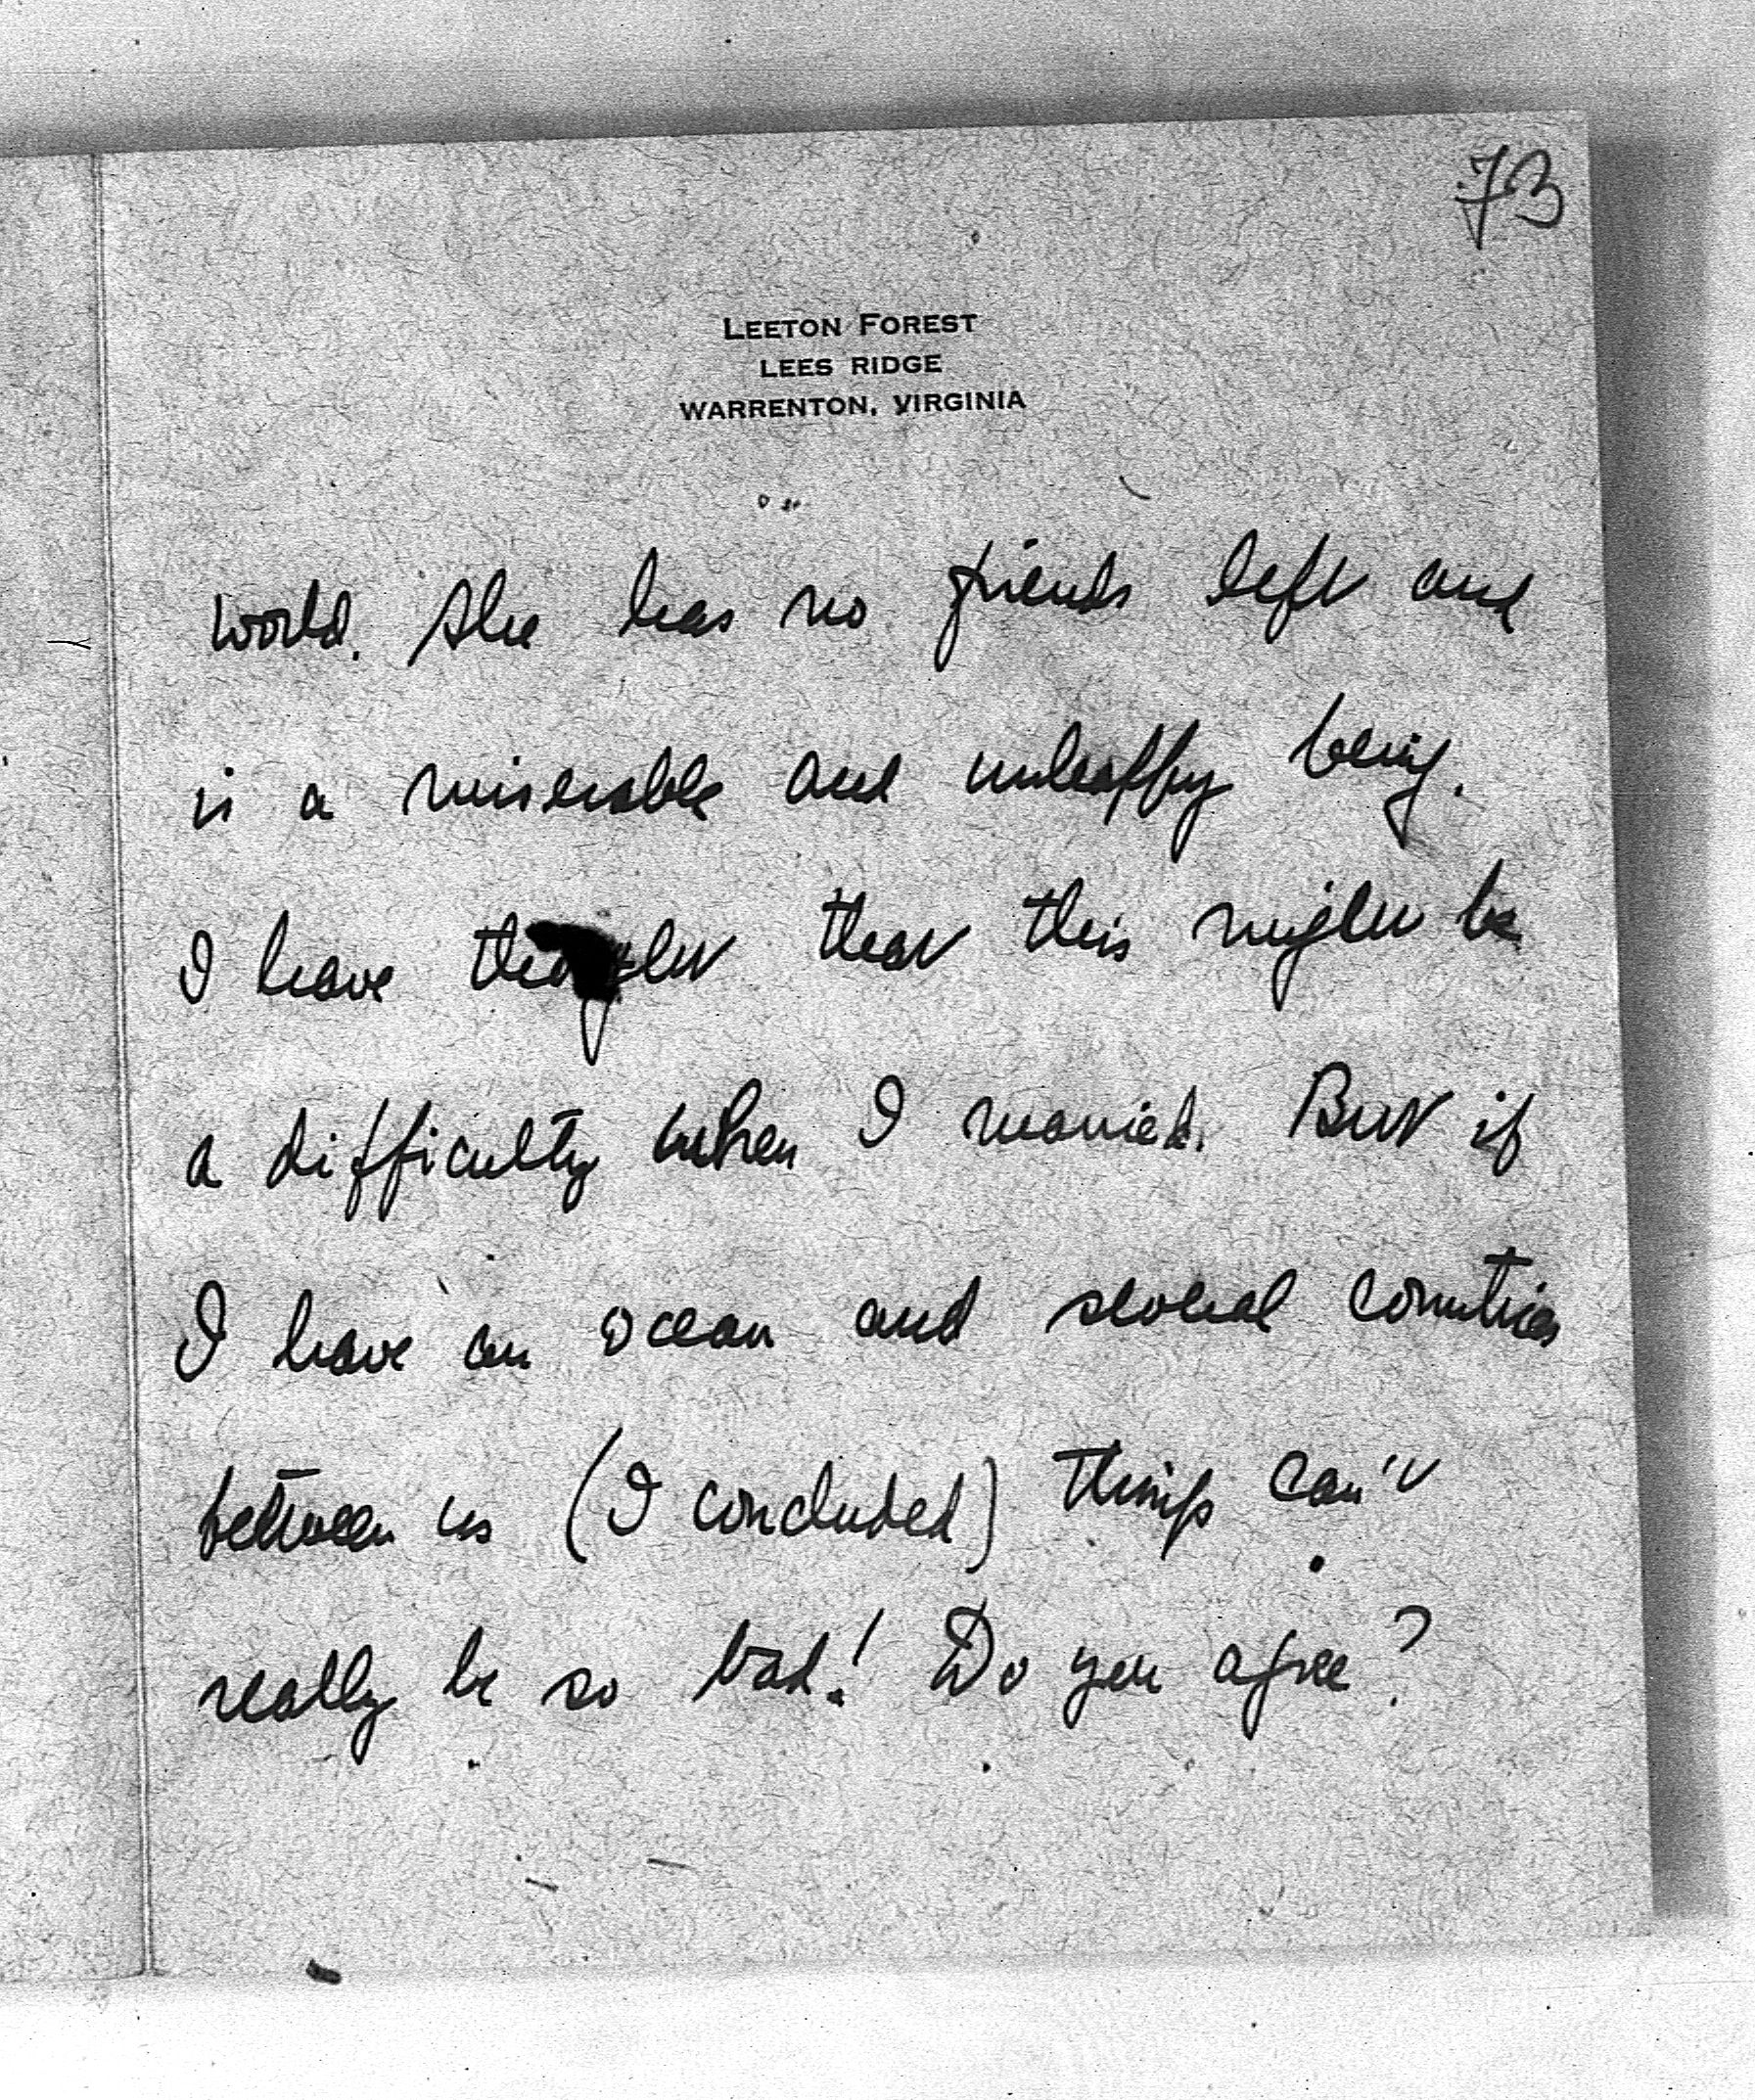 73
LEETON FOREST
LEES RIDGE
WARRENTON, VIRGINIA
world. She has no friends left and
is a miserable and unhappy being.
I have thought that this might be
a difficulty when I married. But if
I have an ocean and several countries
between us (I concluded) things can't
really be so bad! Do you agree?